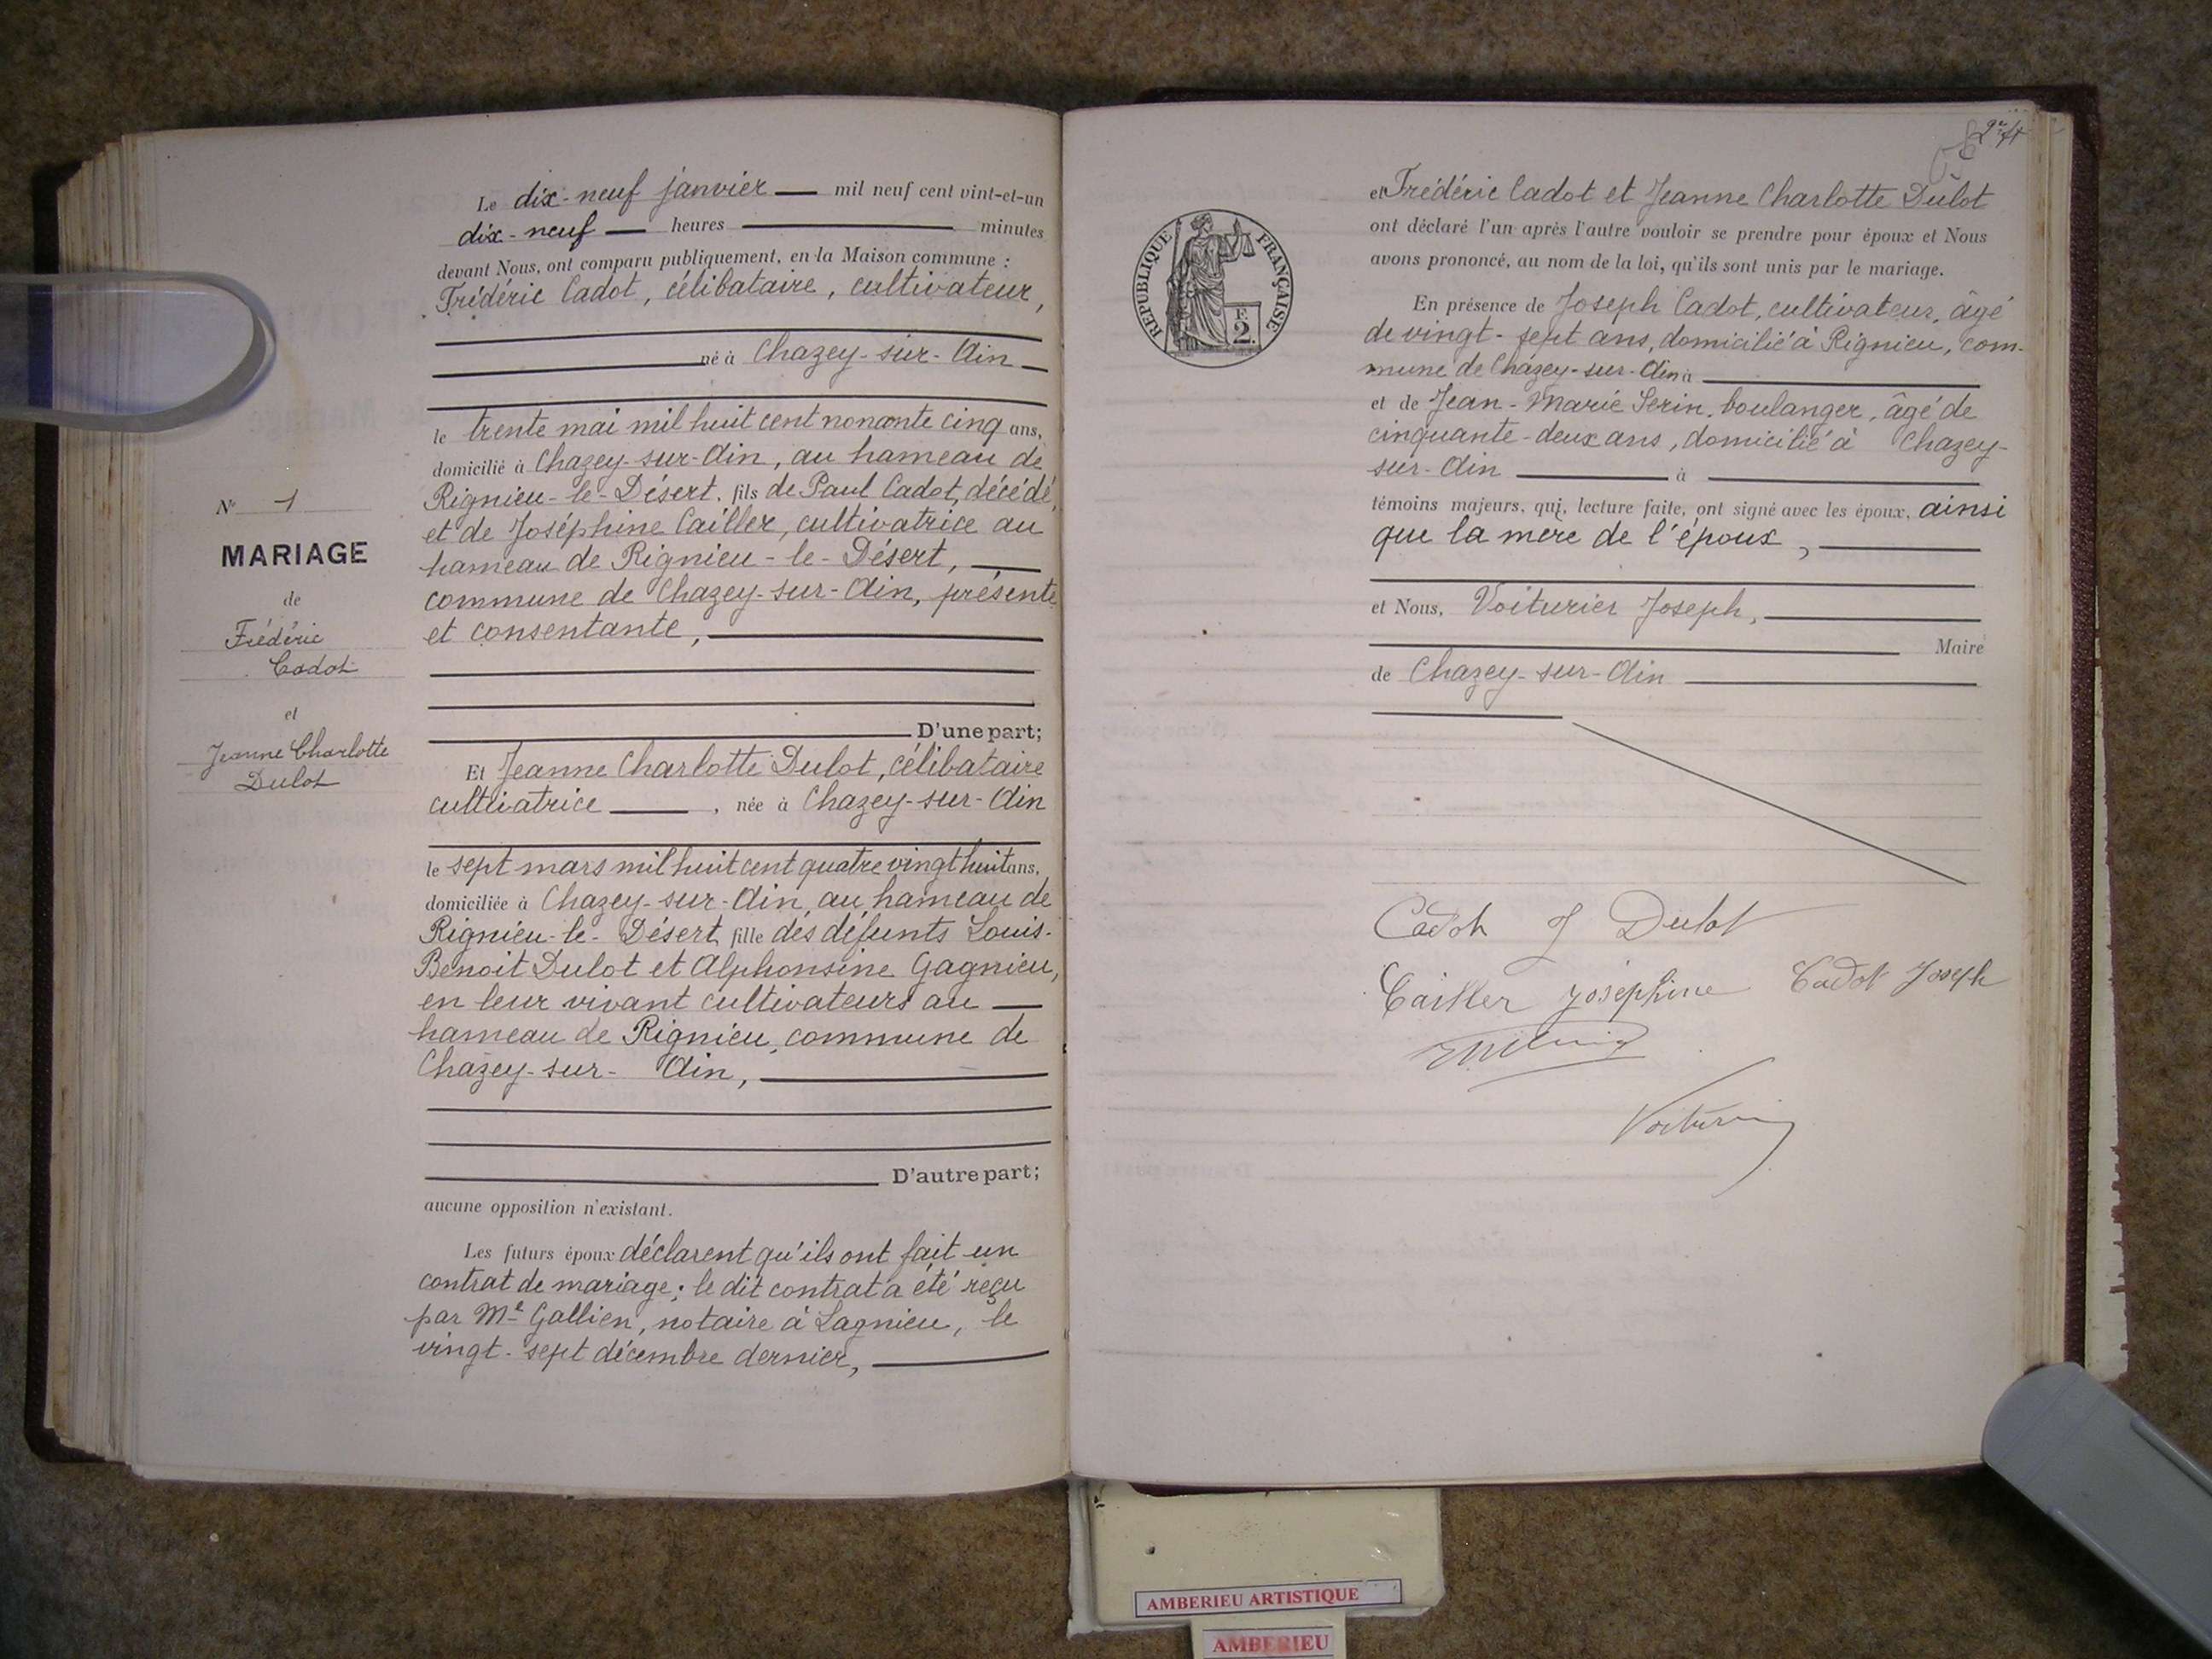 Le dix-neuf janvier — mil neuf cent vint-et-un
dix-neuf — heures — minutes
devant Nous, ont comparu publiquement, en la Maison commune :
Frédéric Cadot, célibataire, cultivateur,
né à Chazey-sur-Ain
le trente mai mil huit cent nonante cinq ans,
domicilié à Chazey-sur-Ain, au hameau de
Rignieu-le-Désert. fils de Paul Cadot, décédé,
et de Joséphine Cailler, cultivatrice au
hameau de Rignieu-le-Désert, —
commune de Chazey-sur-Ain, présente
et consentante, —
D'une part;
Et Jeanne Charlotte Dulot, célibataire
cultiatrice — , née à Chazey-sur-Ain
le sept mars mil huit cent quatre vingt huit ans,
domiciliée à Chazey-sur-Ain, au hameau de
Rignieu-le-Désert fille des défunts Louis-
Benoit Dulot et Alphonsine Gagnieu,
en leur vivant cultivateurs au —
hameau de Rignieu, commune de
Chazey-sur-Ain, —
D'autre part;
aucune opposition n'existant.
Les futurs époux déclarent qu'ils ont fait un
contrat de mariage; le dit contrat a été reçu
par Me Gallien, notaire à Lagnieu, le
vingt-sept décembre dernier, —
N° 1
MARIAGE
de
Frédéric
Cadot
et
Jeanne Charlotte
Dulot
et Frédéric Cadot et Jeanne Charlotte Dulot
ont déclaré l'un après l'autre vouloir se prendre pour époux et Nous
avons prononcé, au nom de la loi, qu'ils sont unis par le mariage.
En présence de Joseph Cadot, cultivateur, âgé
de vingt-sept ans, domicilié à Rignieu, com-
mune de Chazey-sur-Ain à —
et de Jean-Marie Serin, boulanger, âgé de
cinquante-deux ans, domicilié à Chazey-
sur-Ain — à —
témoins majeurs, qui, lecture faite, ont signé avec les époux, ainsi
que la mère de l'époux, —
et Nous, Voiturier Joseph, —
Maire
de Chazey-sur-Ain —
RÉPUBLIQUE FRANÇAISE
F.
2.
Cadot J Dulot
Cailler Joséphine Cadot Joseph
Voiturier
AMBERIEU ARTISTIQUE
AMBERIEU